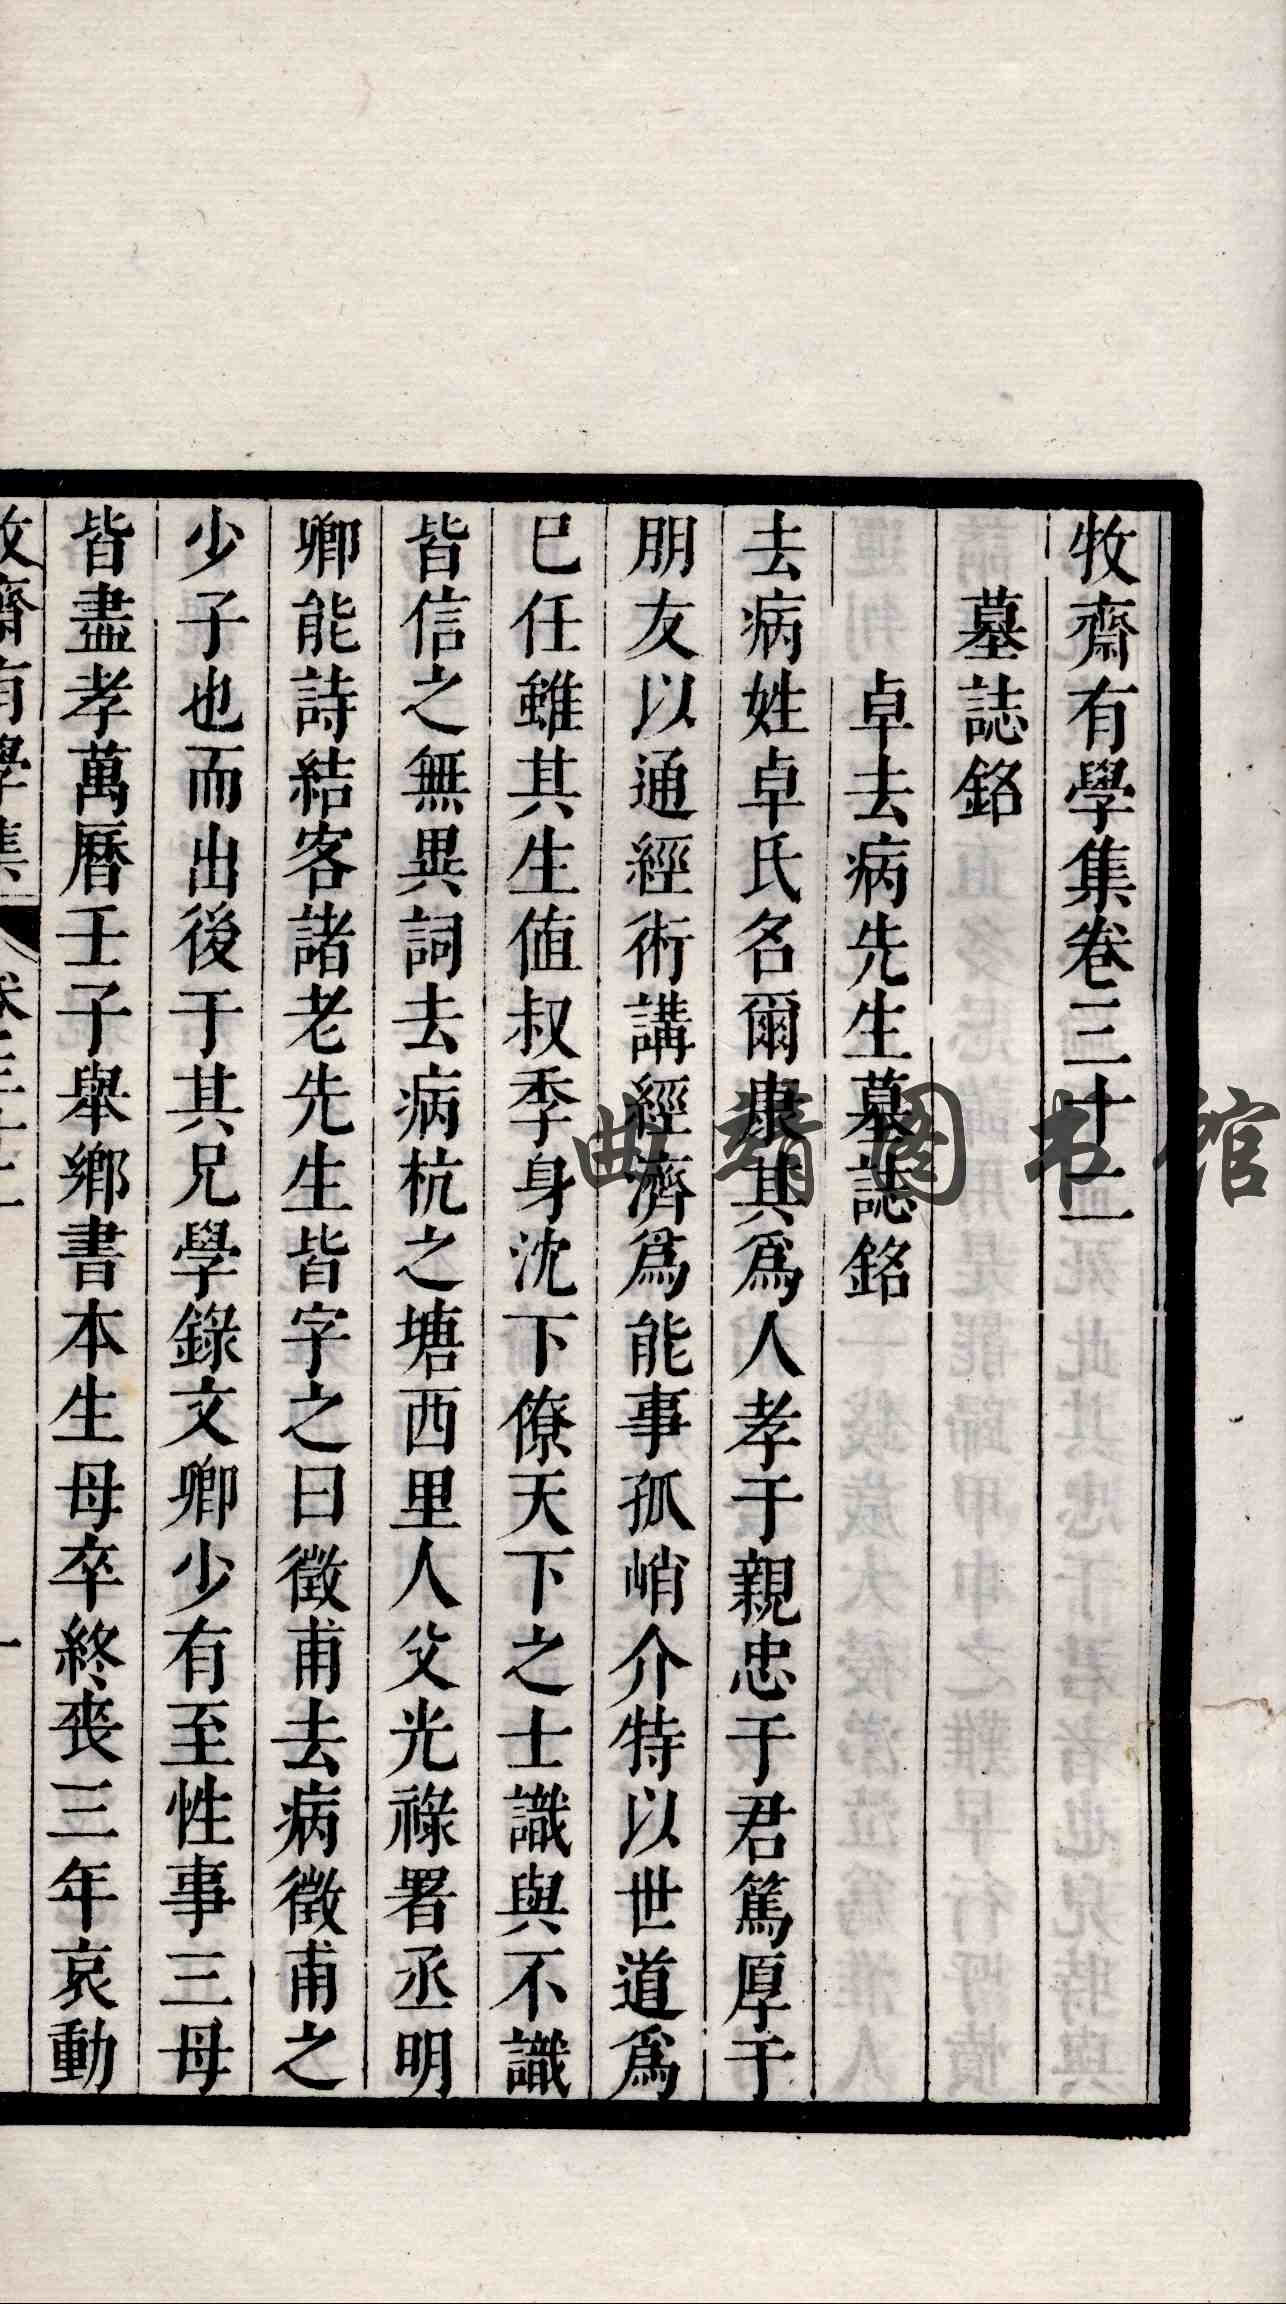 牧齋有學集卷三十二
墓誌銘
卓去病先生墓誌銘
去病姓卓氏名爾康其爲人孝于親忠于君篤厚于
朋友以通經術講經濟爲能事孤峭介特以世道爲
已任雖其生値叔季身沈下僚天下之士識與不識
皆信之無異詞去病杭之塘西里人父光祿署丞明
卿能詩結客諸老先生皆字之曰徵甫去病徵甫之
少子也而出後于其兄學錄文卿少有至性事三母
皆盡孝萬曆壬子舉鄉書本生母卒終喪三年哀動
牧齋有學集
卷三十二
一
曲靖图书馆